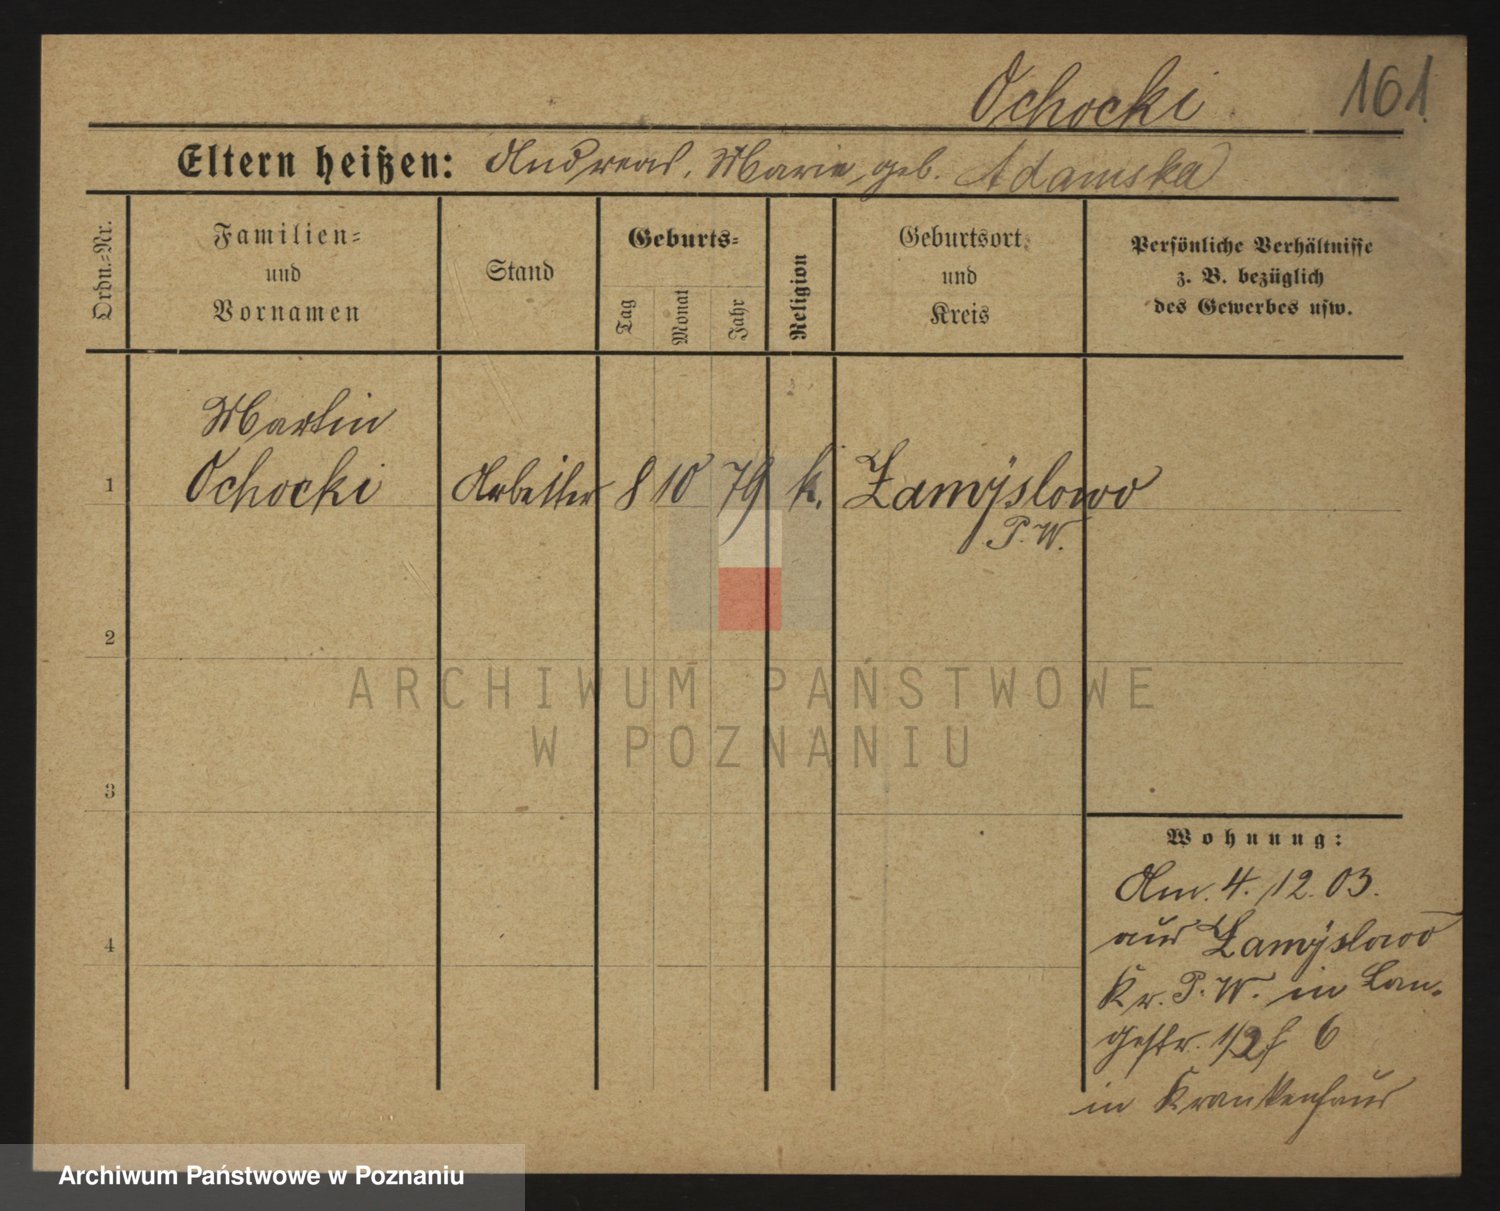 Ochocki 161.
Eltern heißen: Andreas, Marie, geb. Adamska
Ordn.-Nr.
Familien-
und
Vornamen
Stand
Geburts-
Tag
Monat
Jahr
Religion
Geburtsort
und
Kreis
Persönliche Verhältnisse
z. B. bezüglich
des Gewerbes usw.
Martin
1 Ochocki Arbeiter 8 10 79 k. Zamÿslowo
P. W.
2
3
4
Wohnung:
Am. 4. 12. 03.
aus Zamÿslowo
Kr. P. W. in Lan-
gestr. 6
in Krankenhaus
ARCHIWUM PAŃSTWOWE
W POZNANIU
Archiwum Państwowe w Poznaniu